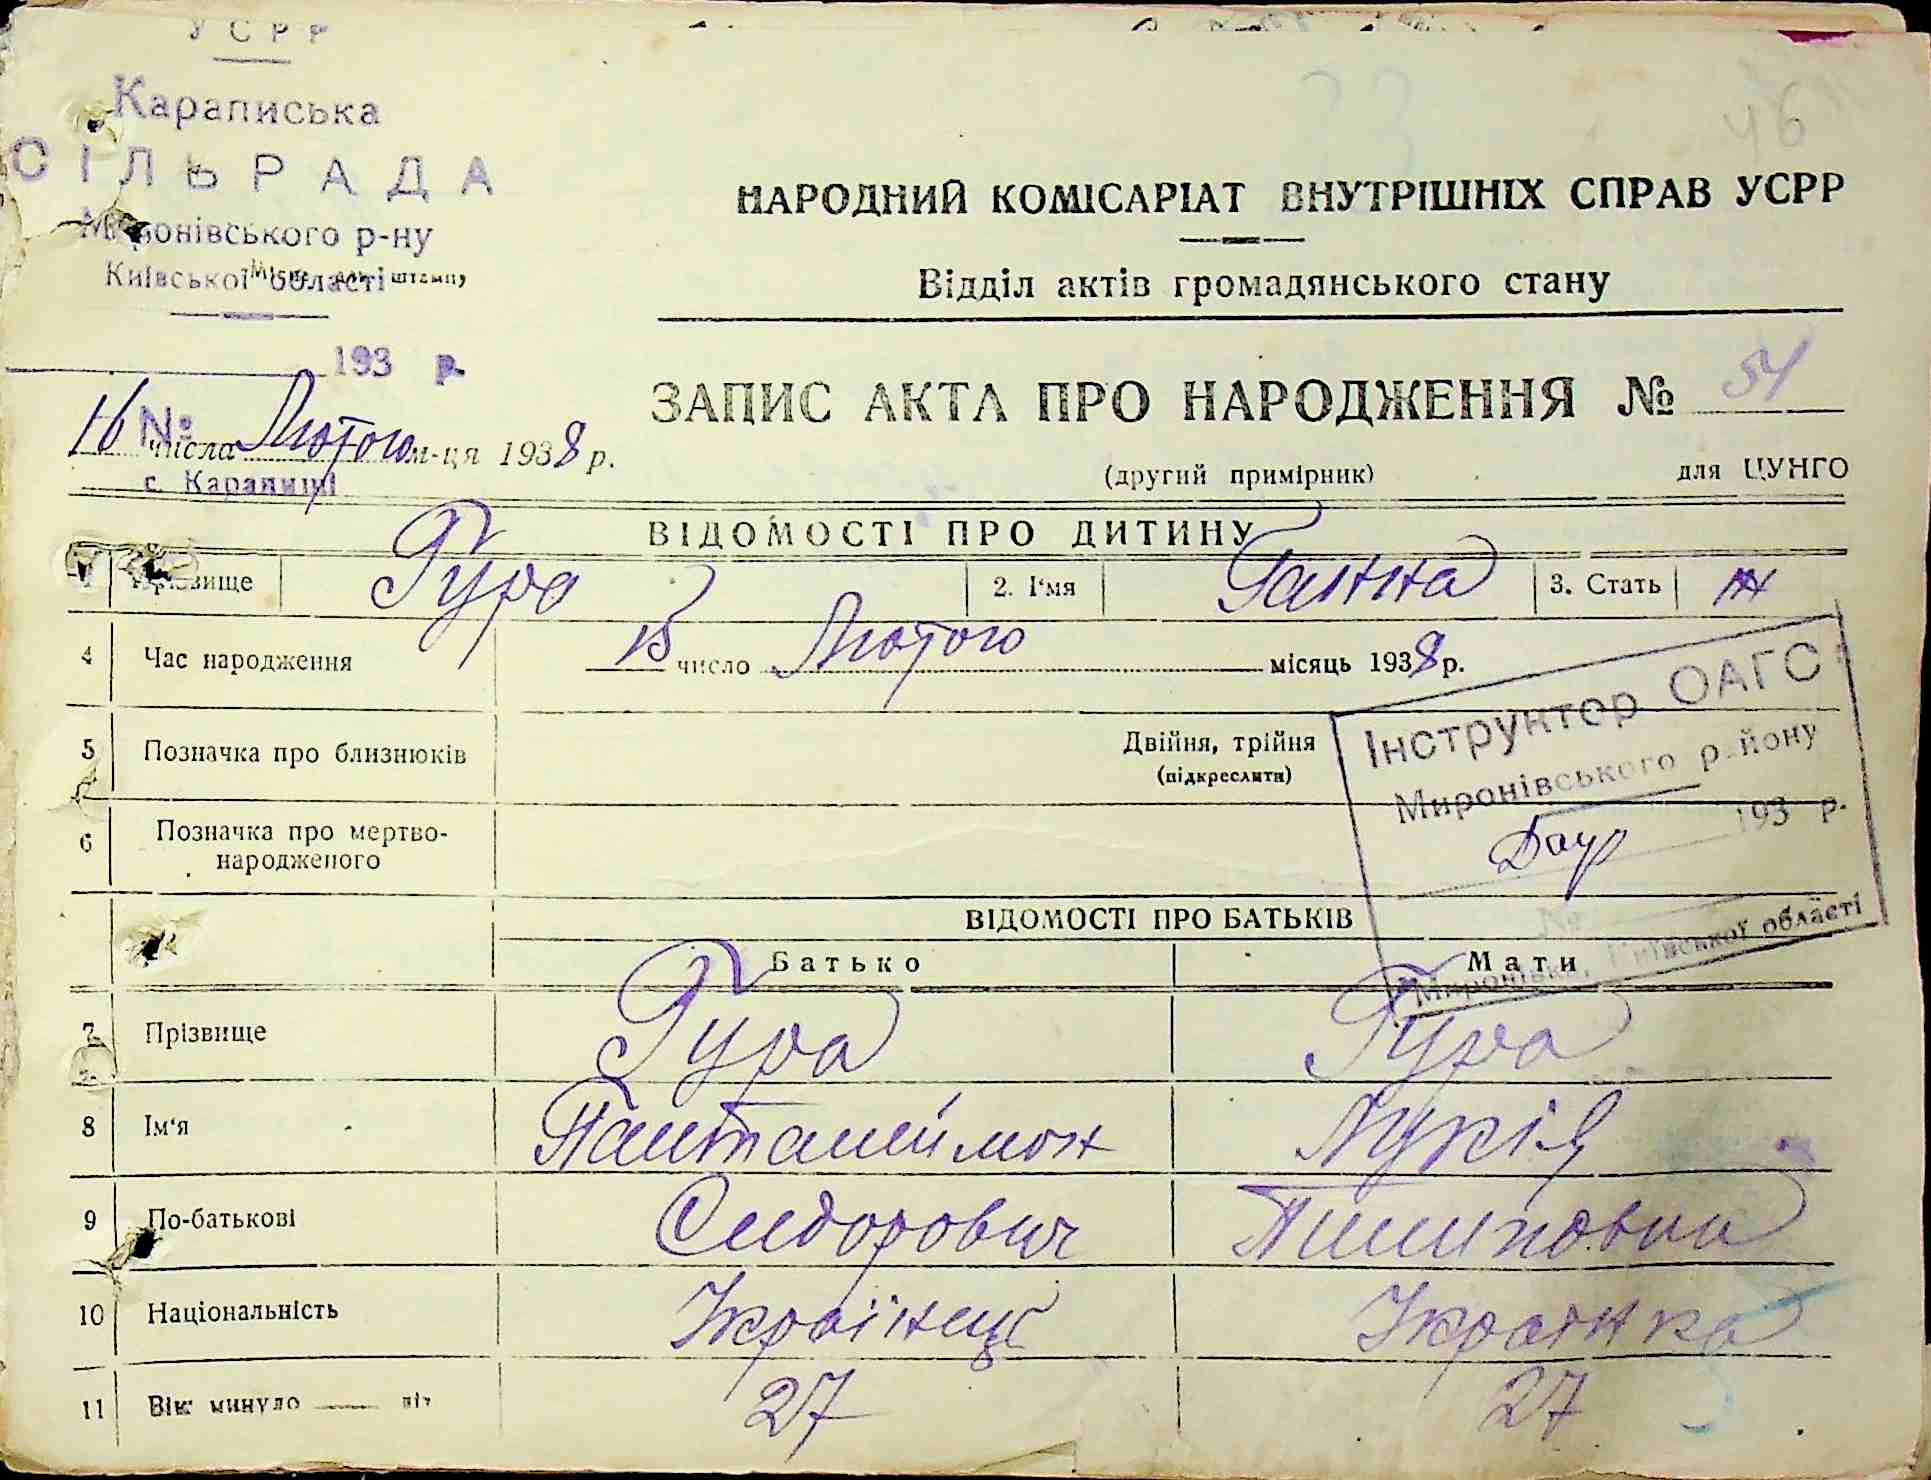 УСРР
Караписька
СІЛЬРАДА
Миронівського р-ну
Київської області
193 р.
№
с. Карапиші
46
НАРОДНИЙ КОМІСАРІАТ ВНУТРІШНІХ СПРАВ УСРР
Відділ актів громадянського стану
ЗАПИС АКТА ПРО НАРОДЖЕННЯ № 54
16 числа Лютого м-ця 1938 р.
(другий примірник) для ЦУНГО
ВІДОМОСТІ ПРО ДИТИНУ
1 Прізвище Гура 2. І'мя Ганна 3. Стать ж
4 Час народження 15 число Лютого місяць 1938 р.
Інструктор ОАГС
Миронівського району
193 р.
№
Миронівка, Київської області
5 Позначка про близнюків Двійня, трійня
(підкреслити)
6 Позначка про мертво-
народженого
ВІДОМОСТІ ПРО БАТЬКІВ
Батько Мати
7 Прізвище Гура Гура
8 Ім'я Пантелеймон Лукія
9 По-батькові Сидорович Пилиповна
10 Національність Українець Українка
11 Вік: минуло літ 27 27